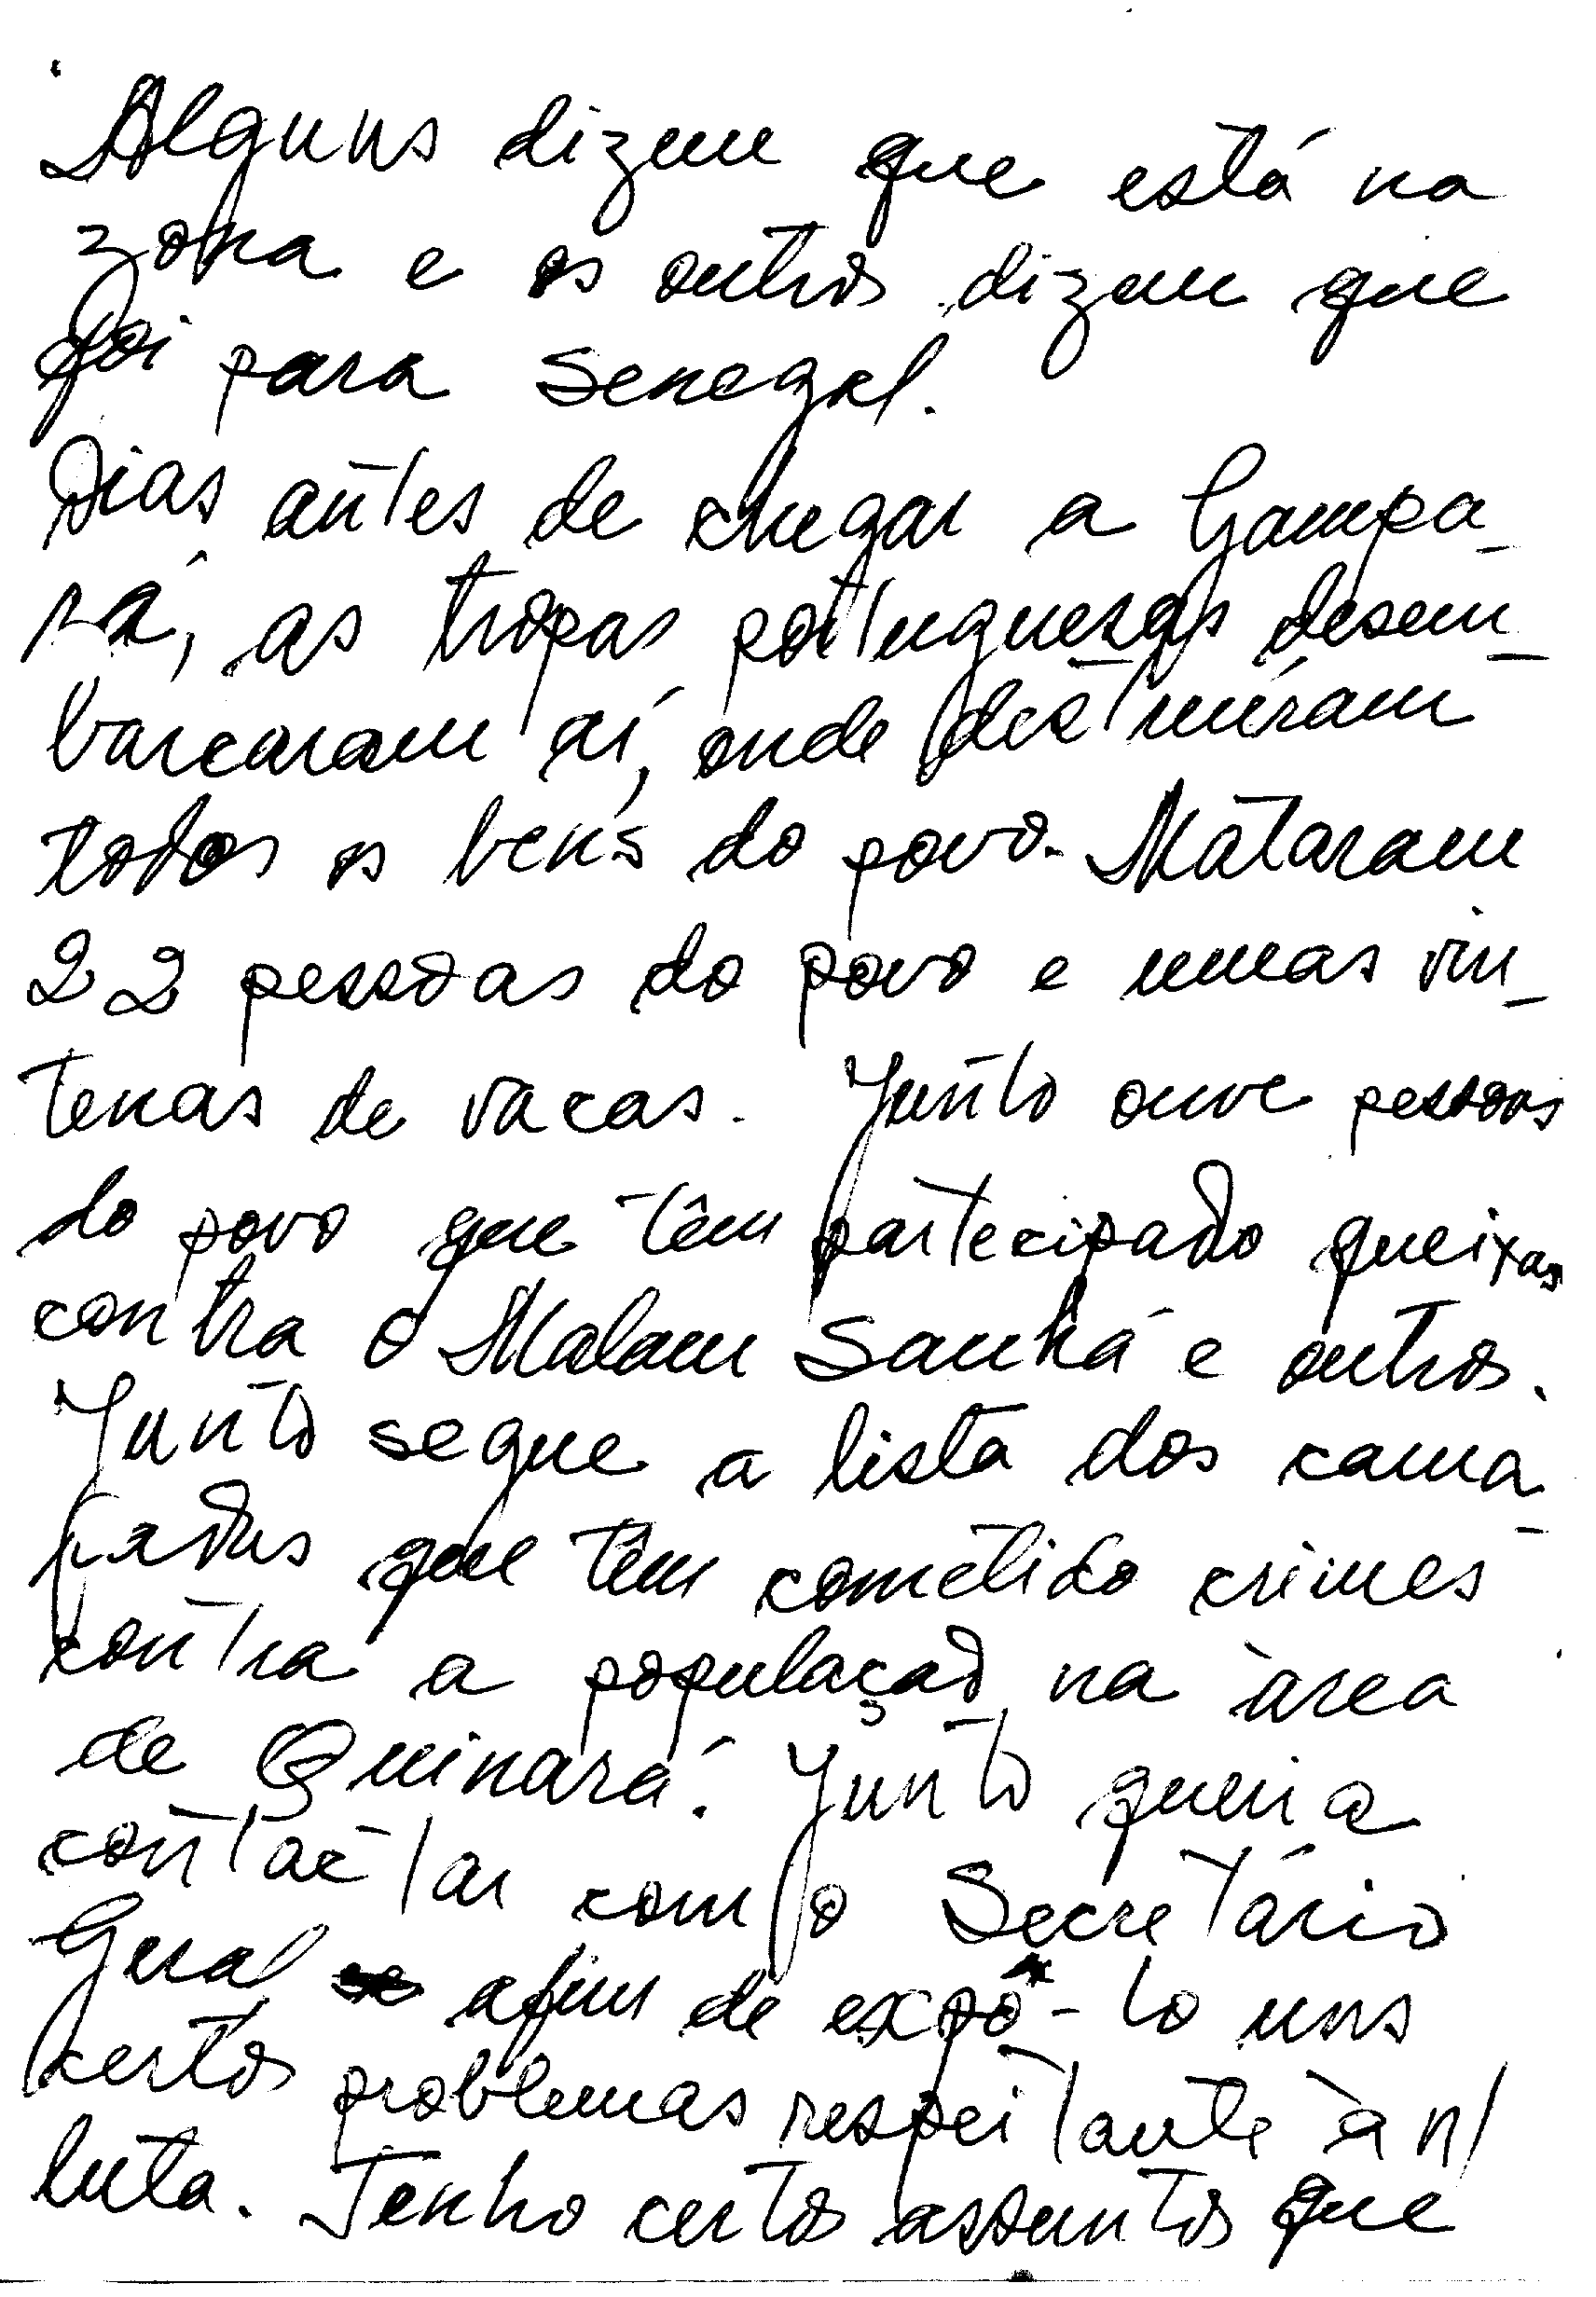 Alguns dizem que está na
zona e os outros dizem que
foi para Senegal.
Dias antes de chegar a Gampa_
rá, as tropas portuguesas desem_
barcaram aí, onde destruíram
todos os bens do povo. Mataram
22 pessoas do povo e umas vin_
tenas de vacas. Junto ouve pessoas
do povo que têm partecipado queixas
contra o Malam Sanhá e outros.
Junto segue a lista dos cama_
radas que têm cometido crimes
contra a população na àrea
de Quinará. Junto queria
contactar com o Secretário
Geral afim de expô-lo uns
certos problemas respeitante à n/
luta. Tenho certos assuntos que